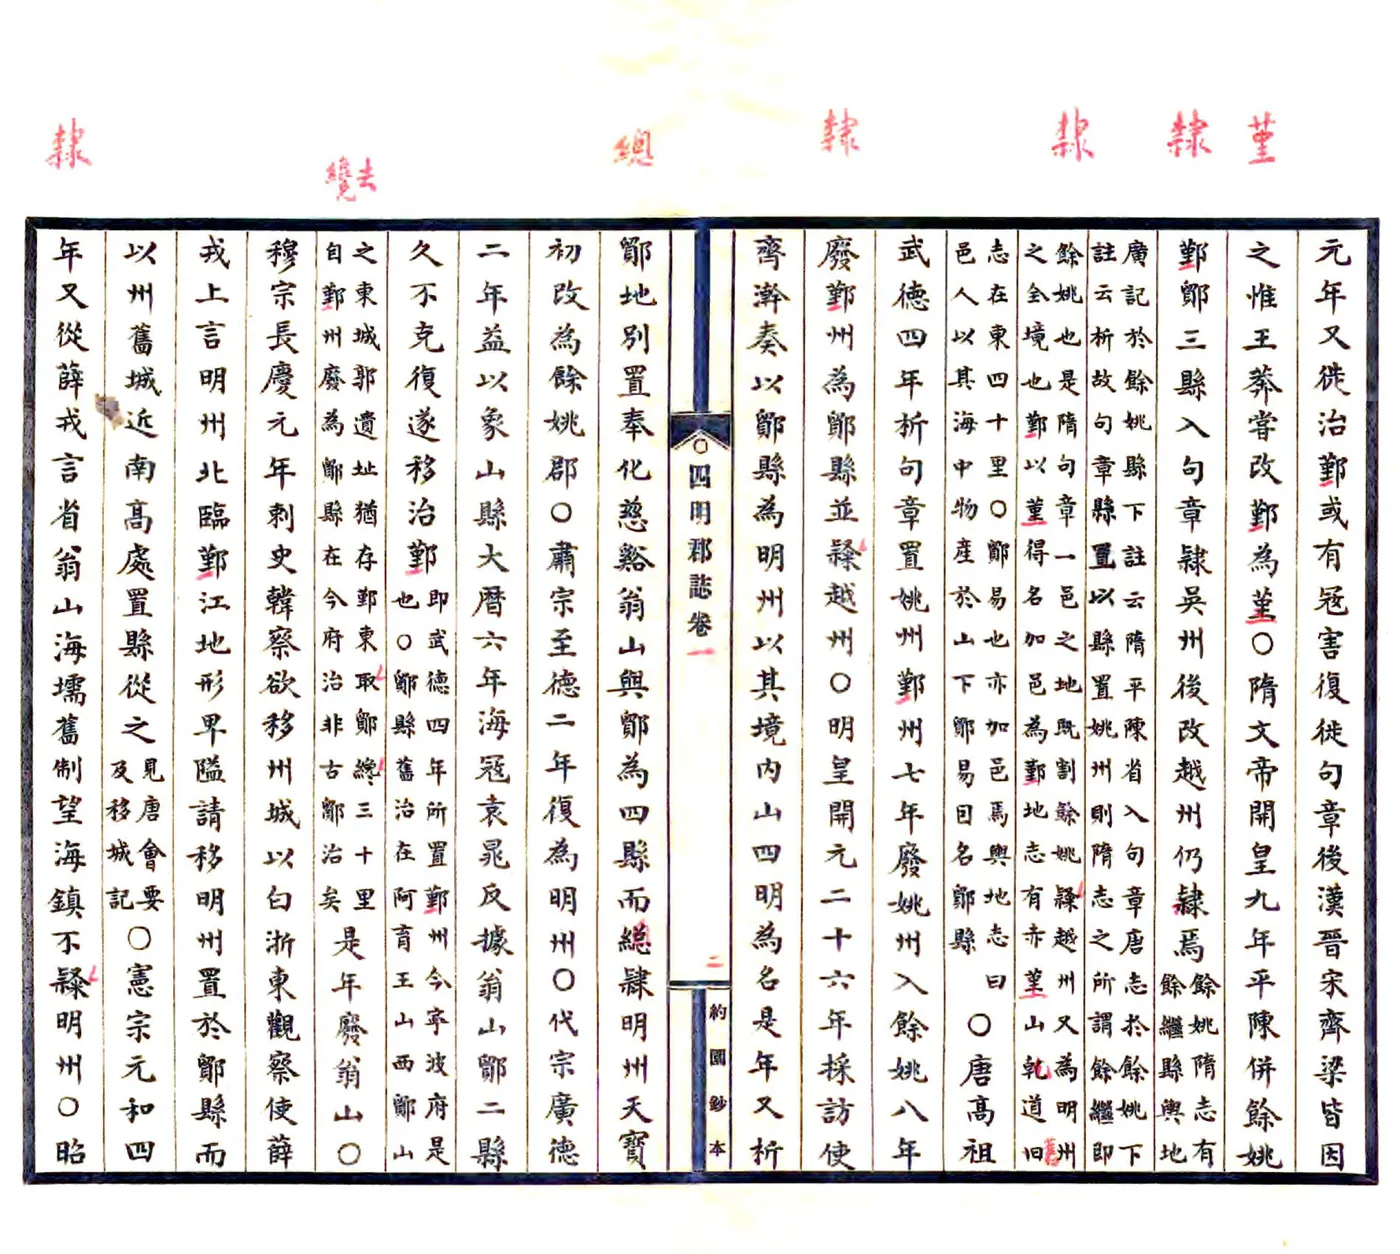 菫
隸
隸
隸
總
去
纔
隸
元年又徙治鄞或有冦害復徙句章後漢晉宋齊梁皆因
之惟王莽嘗改鄞為菫○隋文帝開皇九年平陳併餘姚
鄞鄮三縣入句章隸吳州後改越州仍隸焉
餘姚隋志有
餘繼縣輿地
廣記於餘姚縣下註云隋平陳省入句章唐志於餘姚下
註云析故句章縣置以縣置姚州則隋志之所謂餘繼即
餘姚也是隋句章一邑之地既割餘姚隸越州又為明州
之全境也鄞以菫得名加邑為鄞地志有赤菫山乾道旧
舊
志在東四十里○鄮易也亦加邑焉輿地志曰
邑人以其海中物產於山下鄮易目名鄮縣
○唐髙祖
武德四年析句章置姚州鄞州七年廢姚州入餘姚八年
廢鄞州為鄮縣並隸越州○明皇開元二十六年採訪使
齊澣奏以鄮縣為明州以其境内山四明為名是年又析
四明郡誌卷一
二
約園鈔本
鄮地別置奉化慈谿翁山與鄮為四縣而總隸明州天寶
初改為餘姚郡○肅宗至德二年復為明州○代宗廣德
二年益以象山縣大曆六年海冦袁晁反據翁山鄮二縣
久不克復遂移治鄞
即武德四年所置鄞州今寧波府是
也○鄮縣舊治在阿育王山西鄮山
之東城郭遺址猶存鄞東取鄮纔三十里
自鄞州廢為鄮縣在今府治非古鄮治矣
是年廢翁山○
穆宗長慶元年刺史韓察欲移州城以白浙東觀察使薛
戎上言明州北臨鄞江地形卑隘請移明州置於鄮縣而
以州舊城近南髙處置縣從之
見唐會要
及移城記
○憲宗元和四
年又從薛戎言省翁山海壖舊制望海鎮不隸明州○昭